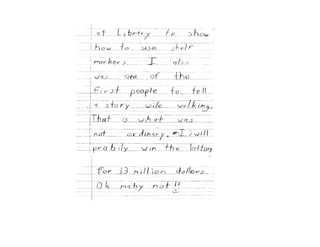 at Library to show
how to use shelf
markers. I also
was one of the
first people to tell
a story wile walking.
That is what was
not ordinery. I will
probily win the lottory
for 13 million dollars.
Ok maby not!!